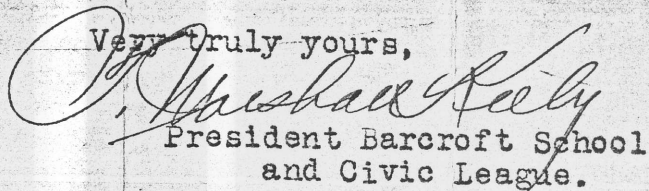 Very truly yours,
Marshall
President Barcroft School
and Civic League.